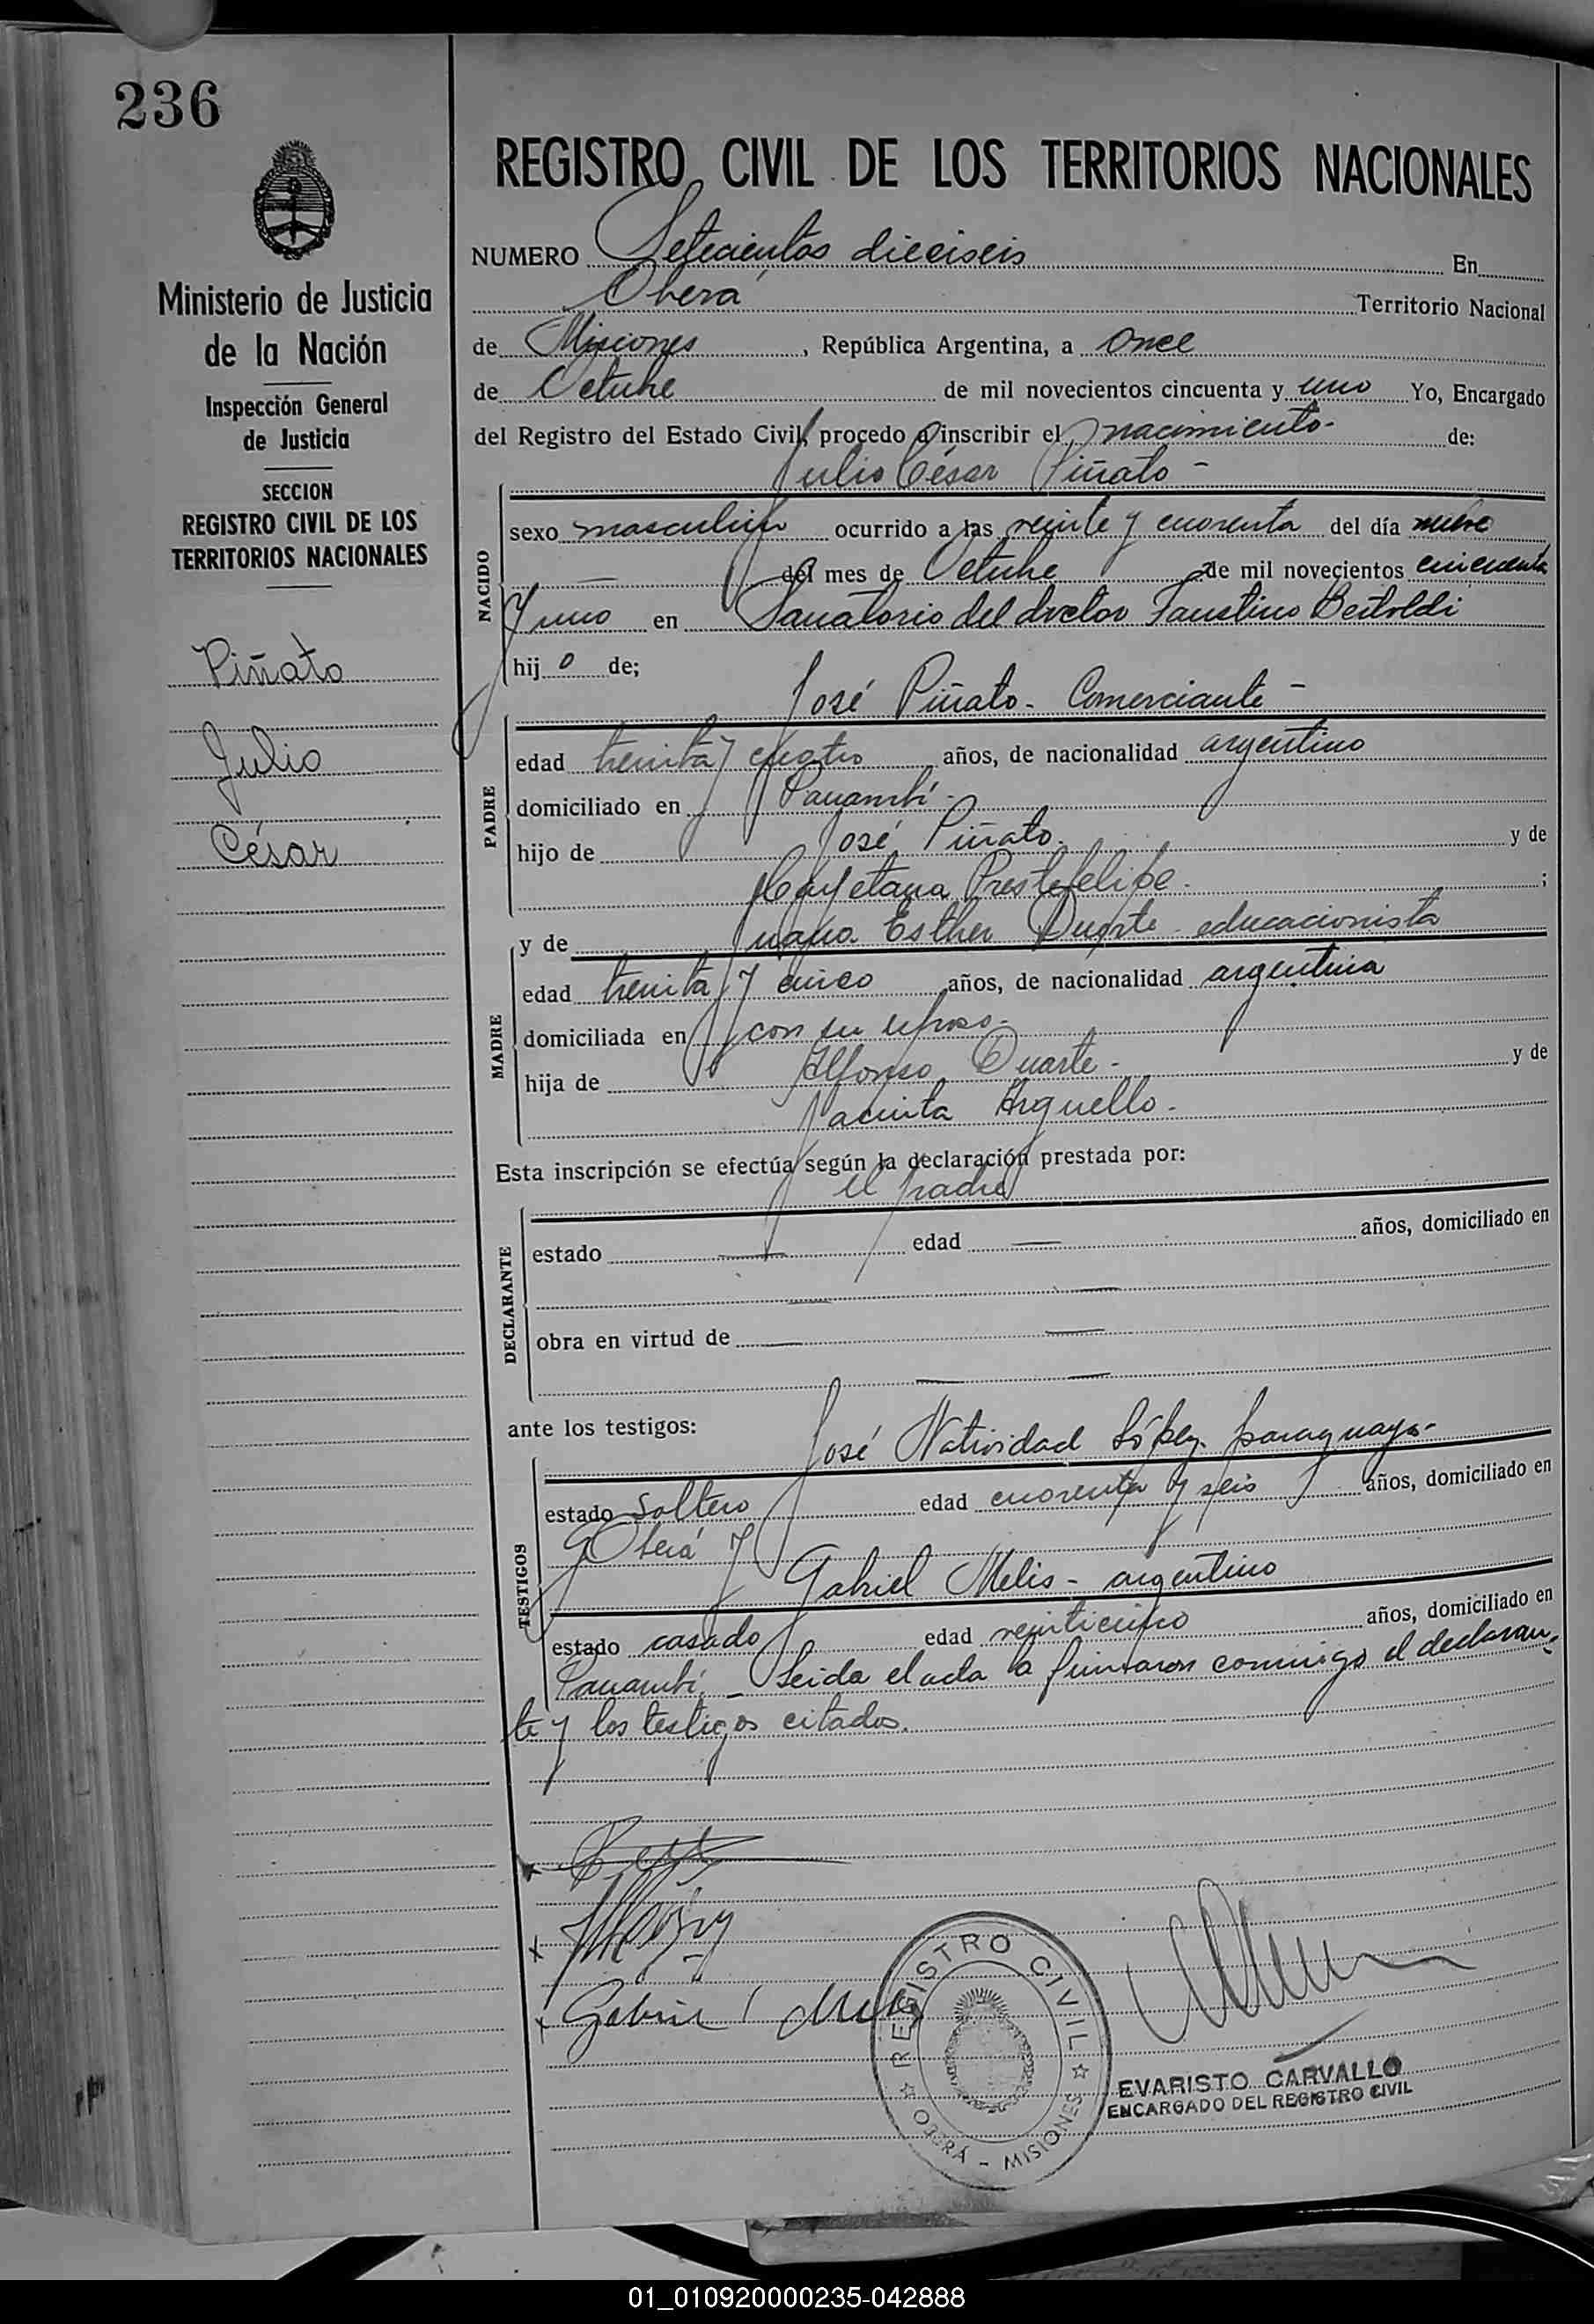 236
Ministerio de Justicia
de la Nación
Inspección General
de Justicia
SECCION
REGISTRO CIVIL DE LOS
TERRITORIOS NACIONALES
Piñato
Julio
César
REGISTRO CIVIL DE LOS TERRITORIOS NACIONALES
NUMERO Setecientos dieciseis En
Oberá Territorio Nacional
de Misiones, República Argentina, a once
de Octubre de mil novecientos cincuenta y uno Yo, Encargado
del Registro del Estado Civil, procedo a inscribir el nacimiento- de:
Julio César Piñato -
NACIDO
sexo masculino ocurrido a las veinte y cuarenta del día nueve
— del mes de Octubre de mil novecientos cincuenta
y uno en Sanatorio del doctor Faustino Bertoldi
hijo de;
José Piñato - Comerciante -
PADRE
edad treinta y cuatro años, de nacionalidad argentino
domiciliado en Panambí -
hijo de José Piñato. y de
Cayetana Prestefelipe. ;
y de Juana Esther Duarte educacionista
MADRE
edad treinta y cinco años, de nacionalidad argentina
domiciliada en con su esposo-
hija de Alfonso Duarte - y de
Jacinta Arguello -
Esta inscripción se efectúa según la declaración prestada por:
el padre
DECLARANTE
estado — edad — años, domiciliado en
— —
obra en virtud de — —
— —
ante los testigos:
José Natividad López. paraguayo-
TESTIGOS
estado soltero edad cuarenta y seis años, domiciliado en
Oberá y
Gabriel Melis - argentino
estado casado edad veinticinco años, domiciliado en
Panambí. - Leida el acta la firmaron conmigo el declaran-
te y los testigos citados.
x
x
x Gabriel Melis
REGISTRO CIVIL
OBERÁ - MISIONES
EVARISTO CARVALLO
ENCARGADO DEL REGISTRO CIVIL
01_010920000235-042888